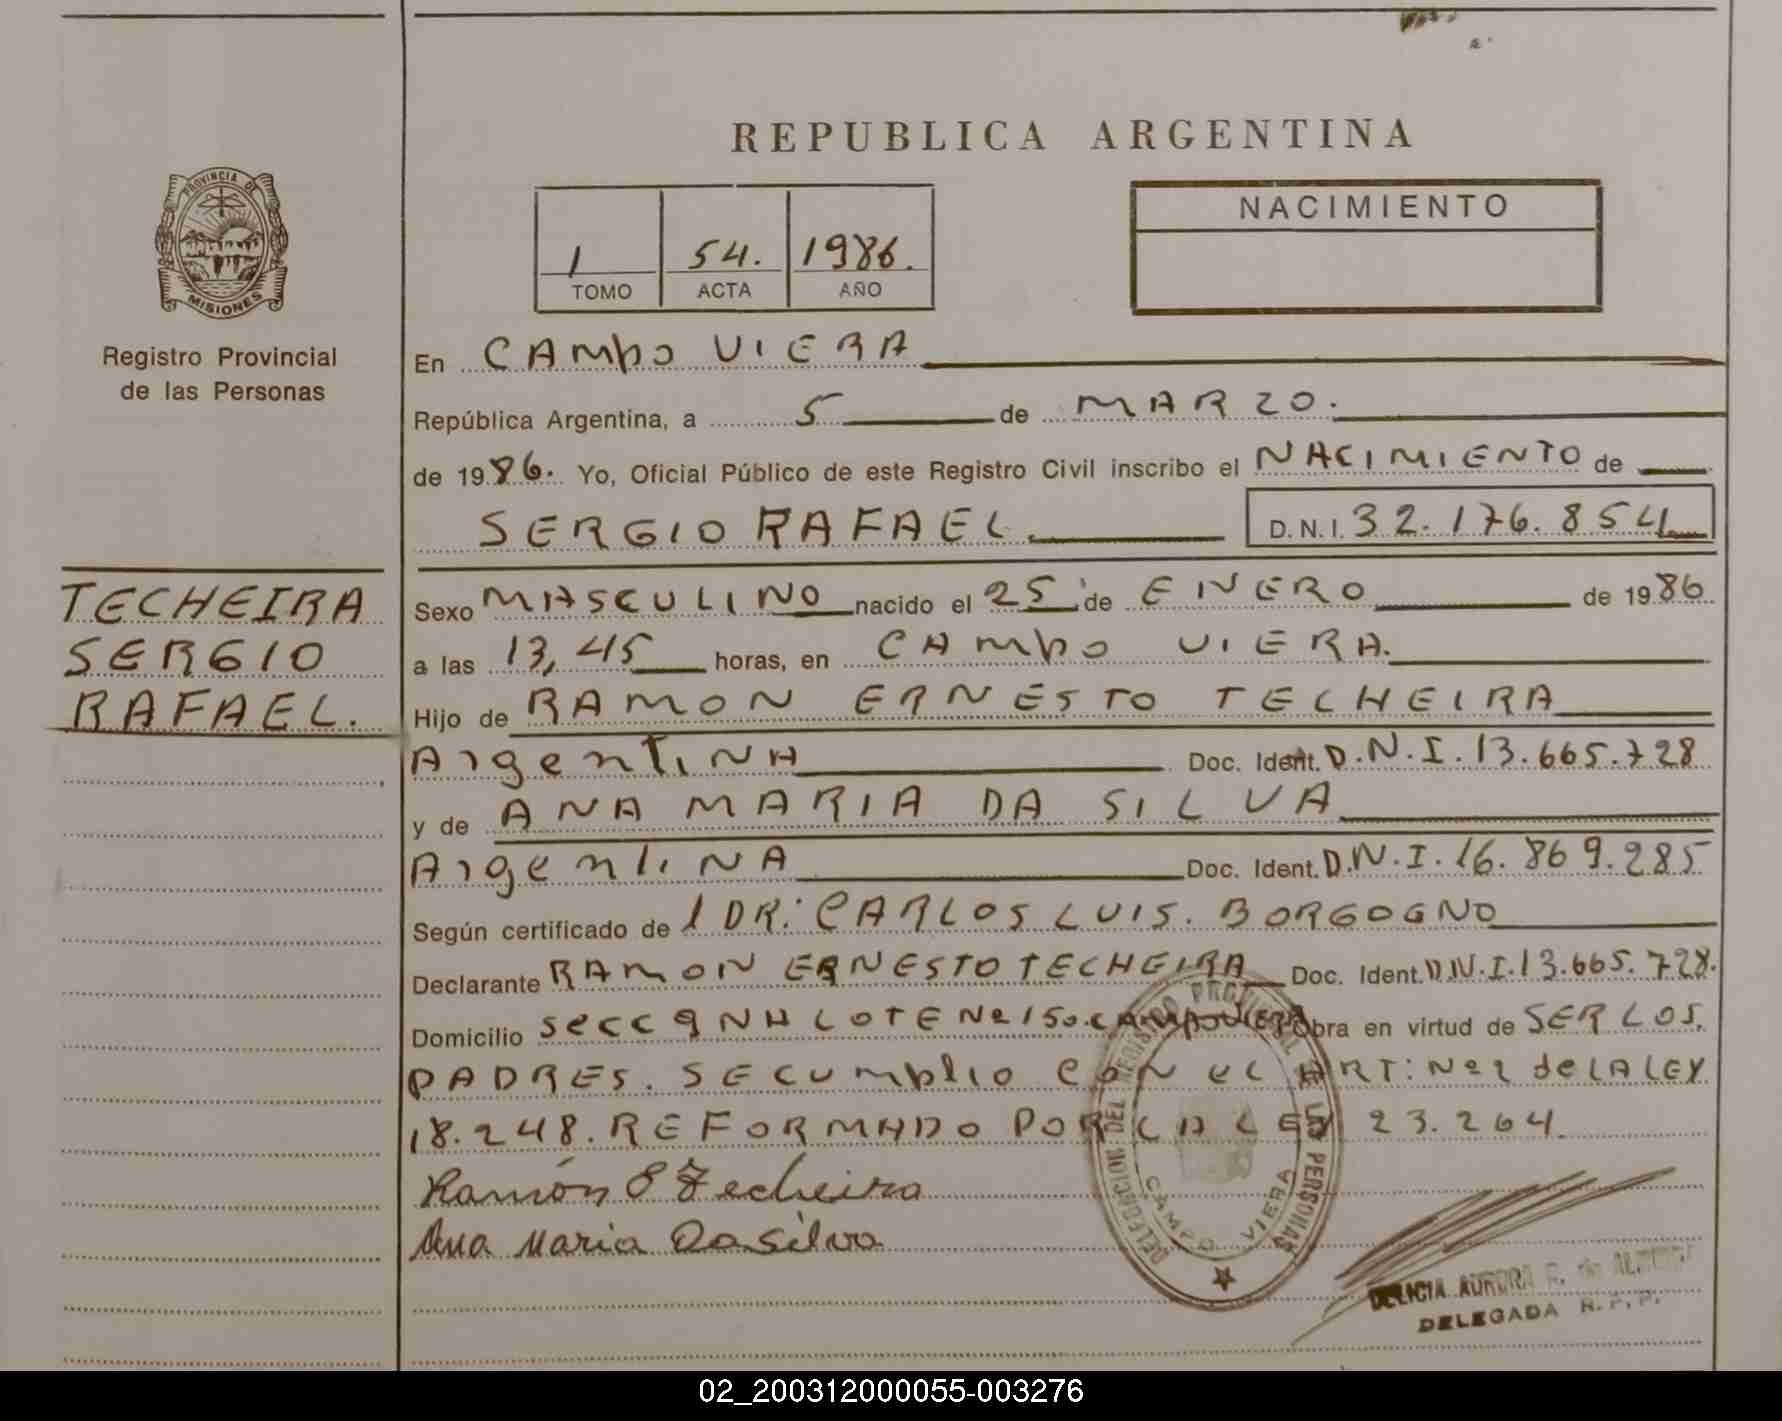 REPUBLICA ARGENTINA
PROVINCIA DE
MISIONES
Registro Provincial
de las Personas
1 54. 1986.
TOMO ACTA AÑO
NACIMIENTO
En CAMPO VIERA
República Argentina, a 5 de MARZO.
de 1986. Yo, Oficial Público de este Registro Civil inscribo el NACIMIENTO de
SERGIO RAFAEL. D.N.I. 32.176.854
TECHEIRA
SERGIO
RAFAEL.
Sexo MASCULINO nacido el 25 de ENERO de 1986
a las 13,45 horas, en CAMPO VIERA.
Hijo de RAMON ERNESTO TECHEIRA
ArgentiNA Doc. Ident. D.N.I. 13.665.728
y de ANA MARIA DA SILVA
ArgentiNA Doc. Ident. D.N.I. 16.869.285
Según certificado de l DR: CARLOS LUIS. BORGOGNO
Declarante RAMON ERNESTO TECHEIRA Doc. Ident. D.N.I. 13.665.728.
Domicilio secc 9NA LOTE Nº 150. CAMPO VIERA Obra en virtud de SER LOS.
PADRES. SE CUMPLIO CON EL ART: Nº 2 de LA LEY
18.248. REFORMADO POR LA LEY 23.264.
Ramón E Techeira
Ana Maria Da silva
DELEGACION DEL REGISTRO PROVINCIAL DE LAS PERSONAS
CAMPO VIERA
DELICIA AURORA R. de
DELEGADA R.P.P.
02_200312000055-003276